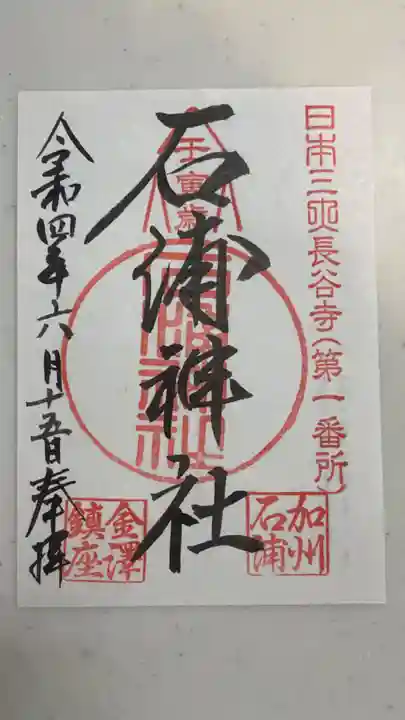 日本三大長谷寺(第一番所)
加州
石浦
壬寅歳
石浦神社
石浦神社
金澤
鎮座
令和四年六月十五日奉拝